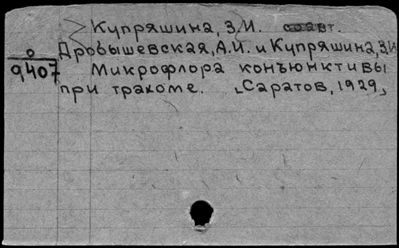 Купряшина, З.И. соавт.
о
Дробышевская, А.И. и Купряшина, З.И
9,407 Микрофлора конъюнктивы
при трахоме. [Саратов, 1929,]